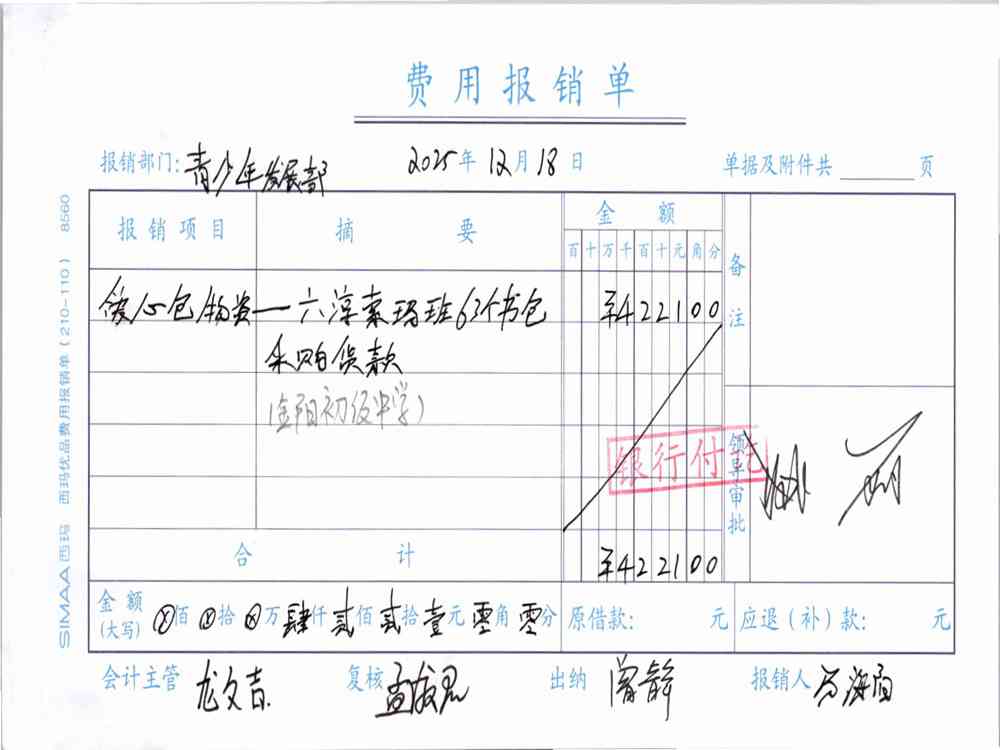 费用报销单
报销部门:青少年发展部 2025年12月18日 单据及附件共 页
报销项目 摘要 金额 备注
百十万千百十元角分
爱心包物资 — 六淳索玛班63个书包 ¥422100
采购货款
(金阳初级中学)
银行付讫
领导审批
合计 ¥422100
金额(大写) ⊗佰⊗拾⊗万肆仟贰佰贰拾壹元零角零分 原借款: 元 应退(补)款: 元
会计主管 龙文吉 复核 出纳 曾静 报销人
SIMAA西玛 西玛优品费用报销单(210-110) 8560